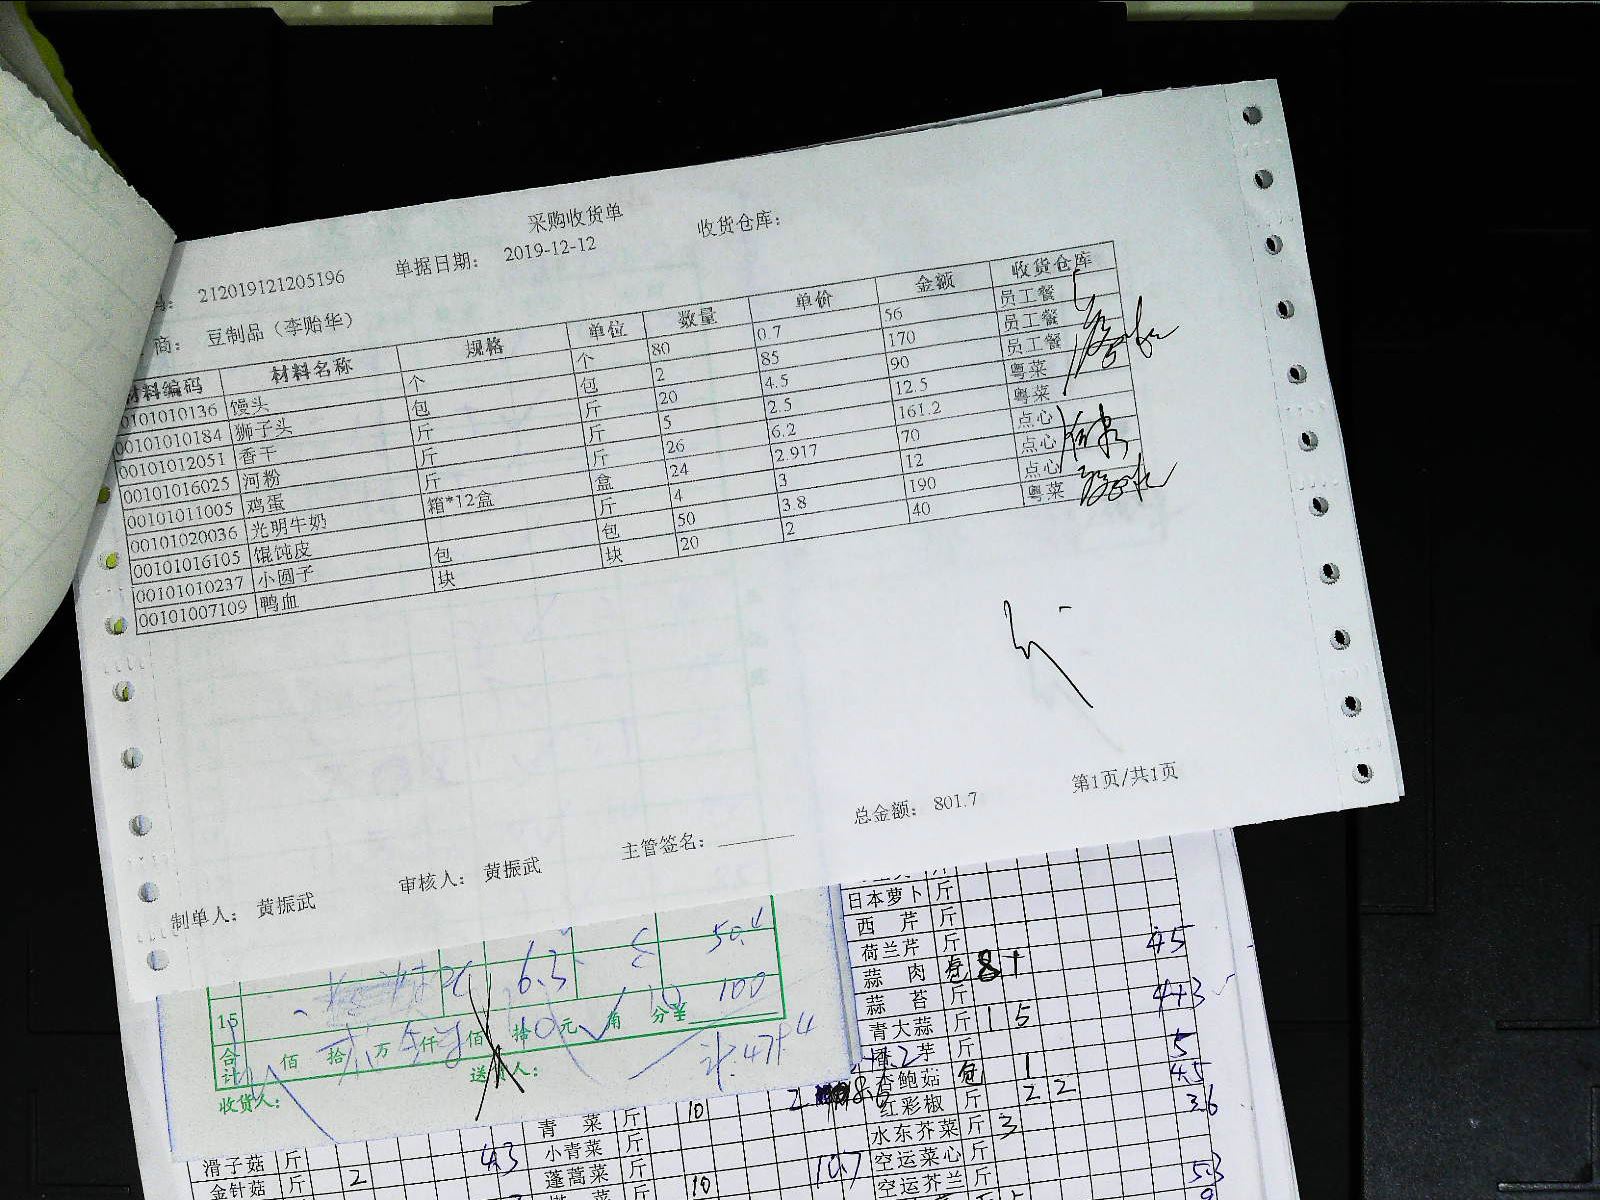 采购收货单
212019121205196 单据日期： 2019-12-12 收货仓库：
商： 豆制品（李贻华）
材料编码 材料名称 规格 单位 数量 单价 金额 收货仓库
00101010136 馒头 个 个 80 0.7 56 员工餐
00101010184 狮子头 包 包 2 85 170 员工餐
00101012051 香干 斤 斤 20 4.5 90 员工餐
00101016025 河粉 斤 斤 5 2.5 12.5 粤菜
00101011005 鸡蛋 斤 斤 26 6.2 161.2 粤菜
00101020036 光明牛奶 箱*12盒 盒 24 2.917 70 点心
00101016105 馄饨皮 斤 4 3 12 点心
00101010237 小圆子 包 包 50 3.8 190 点心
00101007109 鸭血 块 块 20 2 40 粤菜
第1页/共1页
总金额： 801.7
制单人： 黄振武 审核人： 黄振武 主管签名：
6.3 50.4
100
15
合计 佰 拾 万 仟 佰 拾 元 角 分￥
收货人： 送货人：
日本萝卜 斤
西 芹 斤
荷兰芹 斤 45
蒜 肉 包 8
蒜 苔 斤
青大蒜 斤 15
芋 斤 5
杏鲍菇 包 1 45
红彩椒 斤 2 2 36
水东芥菜 斤 3
空运菜心 斤
空运芥兰 斤
青 菜 斤 10
小青菜 斤
蓬蒿菜 斤 10.7
滑子菇 斤 43
金针菇 斤 2